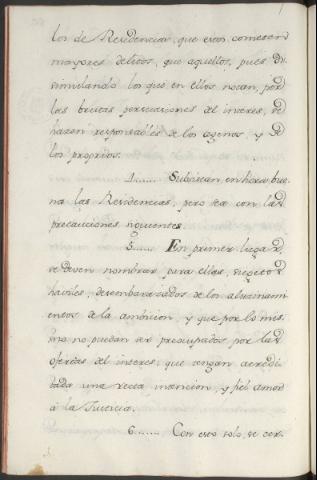 los de Residencias, que estos cometen
mayores delitos, que aquellos, pues di
simulando los que en ellos notan, por
las brutas persuaciones del interes, se
hazen responsables de los agenos, y de
los propios.
4...... Subsistan en hora bue
na las Residencias, pero sea con las
precauciones siguientes.
5...... En primer lugar
se deven nombrar para ellas, sugetos
haviles, desembarazados de los alucinami
entos de la ambicion, y que por lo mis
mo no puedan ser preocupados por las
ofertas del interes, que tengan acredi
tada una recta intencion, y fiel amor
á la Justicia.
6...... Con esto solo, se cer-